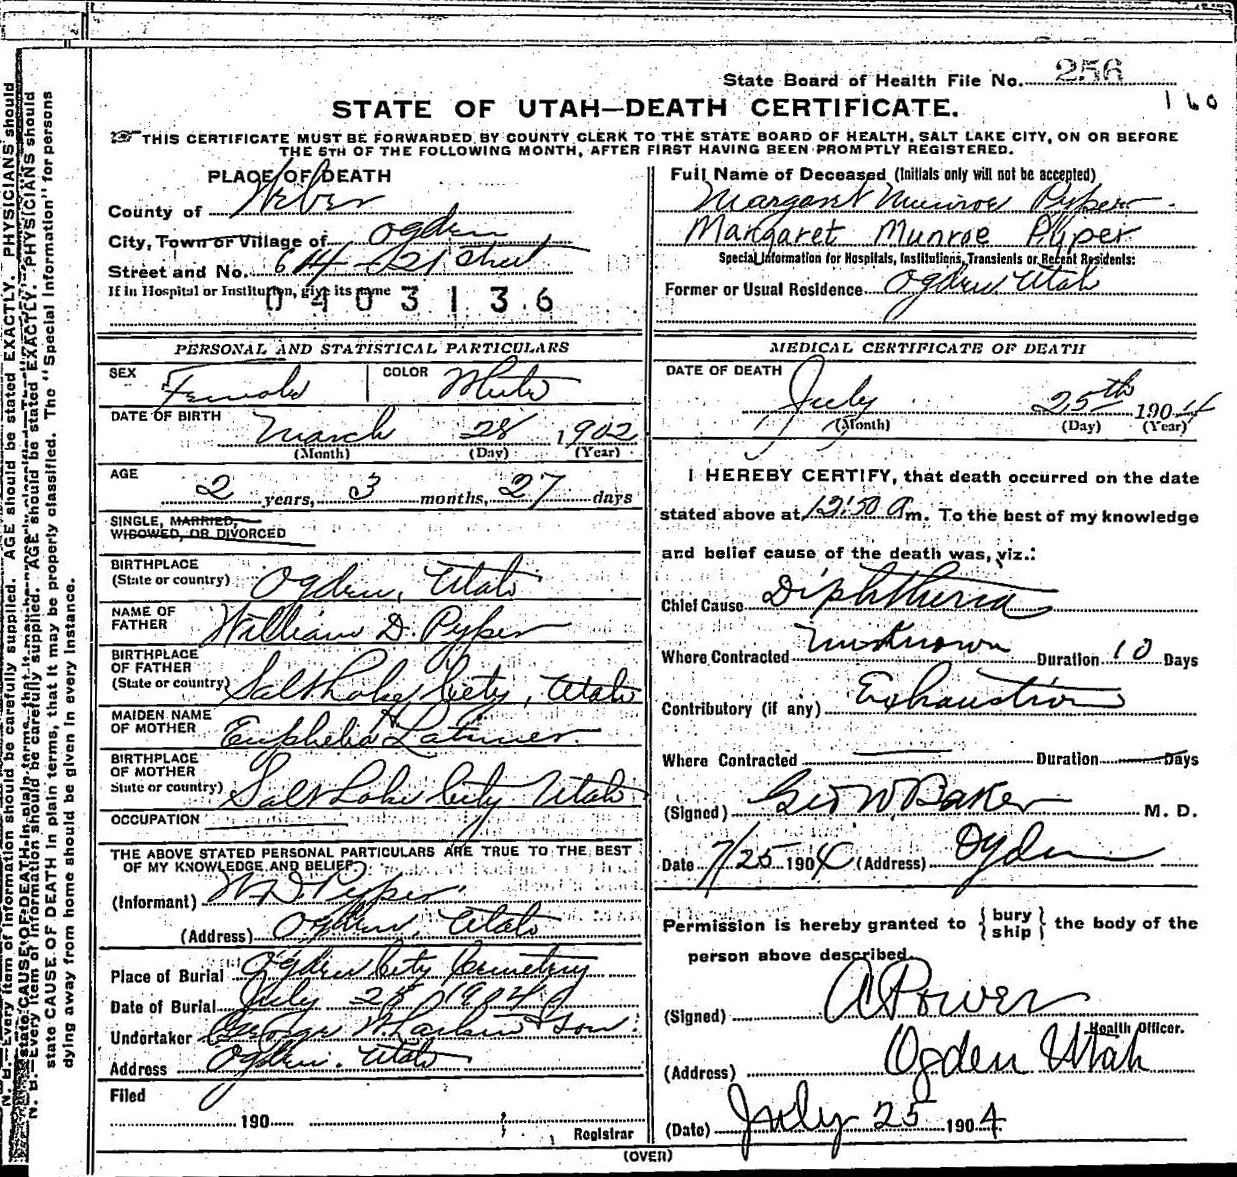 State Board of Health File No. 256
160
STATE OF UTAH—DEATH CERTIFICATE.
THIS CERTIFICATE MUST BE FORWARDED BY COUNTY CLERK TO THE STATE BOARD OF HEALTH, SALT LAKE CITY, ON OR BEFORE
THE 5TH OF THE FOLLOWING MONTH, AFTER FIRST HAVING BEEN PROMPTLY REGISTERED.
PLACE OF DEATH
County of Weber
City, Town or Village of Ogden
Street and No. 614 21 Street
If in Hospital or Institution, give its name
0403136
Full Name of Deceased (Initials only will not be accepted)
Margaret Munroe Pyper
Margaret Munroe Pyper
Special Information for Hospitals, Institutions, Transients or Recent Residents:
Former or Usual Residence Ogden Utah
PERSONAL AND STATISTICAL PARTICULARS
SEX Female COLOR White
DATE OF BIRTH March 28 1902
(Month) (Day) (Year)
AGE 2 years, 3 months, 27 days
SINGLE, MARRIED,
WIDOWED, OR DIVORCED
BIRTHPLACE
(State or country) Ogden, Utah
NAME OF
FATHER William D. Pyper
BIRTHPLACE
OF FATHER
(State or country) Salt Lake City, Utah
MAIDEN NAME
OF MOTHER Euphelia Latimer
BIRTHPLACE
OF MOTHER
State or country) Salt Lake City Utah
OCCUPATION
THE ABOVE STATED PERSONAL PARTICULARS ARE TRUE TO THE BEST
OF MY KNOWLEDGE AND BELIEF
(Informant) W. D. Pyper
(Address) Ogden, Utah
Place of Burial Ogden City Cemetery
Date of Burial July 25 1904
Undertaker George W. Larkin & Son
Address Ogden. Utah
Filed
190
Registrar
MEDICAL CERTIFICATE OF DEATH
DATE OF DEATH
July 25th 1904
(Month) (Day) (Year)
I HEREBY CERTIFY, that death occurred on the date
stated above at 12:50 a m. To the best of my knowledge
and belief cause of the death was, viz.:
Chief Cause Diphtheria
Where Contracted Unknown Duration 10 Days
Contributory (if any) Exhaustion
Where Contracted Duration Days
(Signed) Geo W Baker M. D.
Date 7/25 1904 (Address) Ogden
Permission is hereby granted to {bury ship} the body of the
person above described.
(Signed) A Power
Health Officer.
(Address) Ogden Utah
(Date) July 25 1904
(OVER)
N. B.—Every item of information should be carefully supplied. AGE should be stated EXACTLY. PHYSICIANS should
state CAUSE OF DEATH in plain terms, that it may be properly classified. The "Special Information" for persons
dying away from home should be given in every instance.